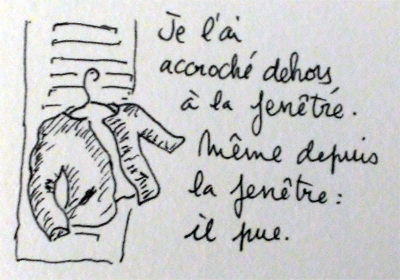 Je l'ai
accroché dehors
à la fenêtré.
même depuis
la fenêtre :
il pue.